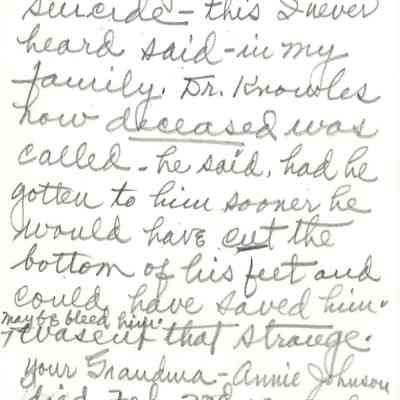 suicide - this I never
heard said - in my
family. Dr. Knowles
now deceased was
called - he said, had he
gotten to him sooner he
would have cut the
bottom of his feet and
could have saved him"
maybe bleed him.
wasent that strange.
your Grandma - Annie Johnson
died Feb.